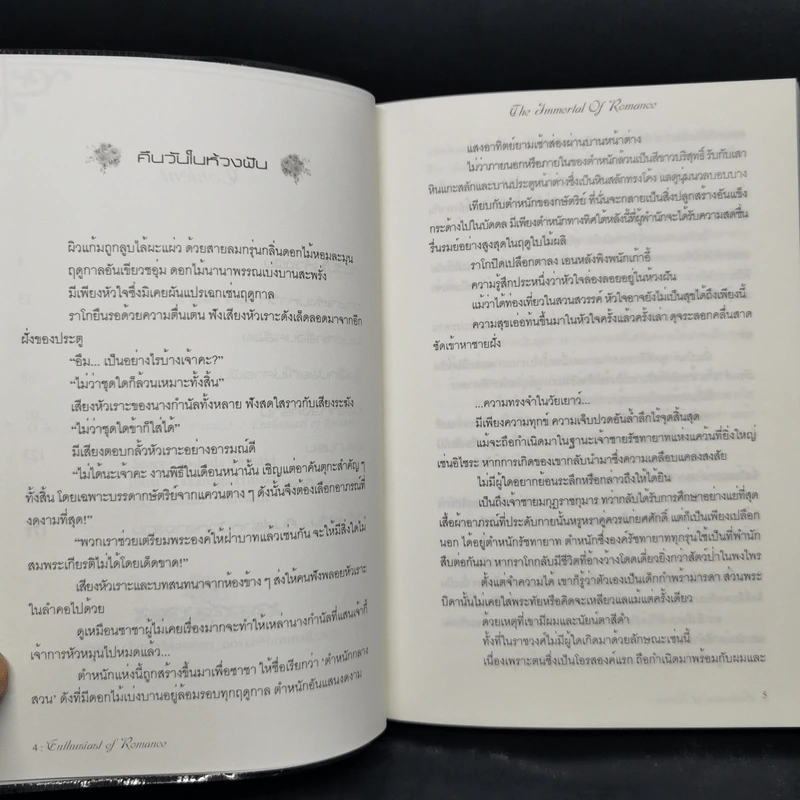 คืนวันในห้วงฝัน
ผิวแก้มถูกลูบไล้ผะแผ่ว ด้วยสายลมกรุ่นกลิ่นดอกไม้หอมละมุน
ฤดูกาลอันเขียวชอุ่ม ดอกไม้นานาพรรณเบ่งบานสะพรั่ง
มีเพียงหัวใจซึ่งมิเคยผันแปรเฉกเช่นฤดูกาล
ราโกยืนรอด้วยความตื่นเต้น ฟังเสียงหัวเราะดังเล็ดลอดมาจากอีก
ฝั่งของประตู
“อืม... เป็นอย่างไรบ้างเจ้าคะ?”
“ไม่ว่าชุดใดก็ล้วนเหมาะทั้งสิ้น”
เสียงหัวเราะของนางกำนัลทั้งหลาย ฟังสดใสราวกับเสียงระฆัง
“ไม่ว่าชุดใดข้าก็ใส่ได้”
มีเสียงตอบกลั้วหัวเราะอย่างอารมณ์ดี
“ไม่ได้นะเจ้าคะ งานพิธีในเดือนหน้านั้น เชิญแต่อาคันตุกะสำคัญๆ
ทั้งสิ้น โดยเฉพาะบรรดากษัตริย์จากแคว้นต่าง ๆ ดังนั้นจึงต้องเลือกอาภรณ์ที่
งดงามที่สุด!”
“พวกเราช่วยเตรียมพระองค์ให้ฝ่าบาทแล้วเช่นกัน จะให้มีสิ่งใดไม่
สมพระเกียรติไม่ได้โดยเด็ดขาด!”
เสียงหัวเราะและบทสนทนาจากห้องข้าง ๆ ส่งให้คนฟังพลอยหัวเราะ
ในลำคอไปด้วย
ดูเหมือนซาซาผู้ไม่เคยเรื่องมากจะทำให้เหล่านางกำนัลที่แสนเจ้ากี้
เจ้าการหัวหมุนไปหมดแล้ว...
ตำหนักแห่งนี้ถูกสร้างขึ้นมาเพื่อซาซา ให้ชื่อเรียกว่า ‘ตำหนักกลาง
สวน’ ดังที่มีดอกไม้เบ่งบานอยู่ล้อมรอบทุกฤดูกาล ตำหนักอันแสนงดงาม
4 : Enthusiast of Romance
The Immortal Of Romance
แสงอาทิตย์ยามเช้าส่องผ่านบานหน้าต่าง
ไม่ว่าภายนอกหรือภายในของตำหนักล้วนเป็นสีขาวบริสุทธิ์ รับกับเสา
หินแกะสลักและบานประตูหน้าต่างซึ่งเป็นหินสลักทรงโค้ง แลดูนุ่มนวลบอบบาง
เทียบกับตำหนักของกษัตริย์ ที่นั่นจะกลายเป็นสิ่งปลูกสร้างอันแข็ง
กระด้างไปในบัดดล มีเพียงตำหนักทางทิศใต้หลังนี้ที่ผู้พำนักจะได้รับความสดชื่น
รื่นรมย์อย่างสูงสุดในฤดูใบไม้ผลิ
ราโกปิดเปลือกตาลง เอนหลังพิงพนักเก้าอี้
ความรู้สึกประหนึ่งว่าหัวใจล่องลอยอยู่ในห้วงฝัน
แม้ว่าได้ท่องเที่ยวในสวนสวรรค์ หัวใจอาจยังไม่เป็นสุขได้ถึงเพียงนี้
ความสุขเอ่อท้นขึ้นมาในหัวใจครั้งแล้วครั้งเล่า ดุจระลอกคลื่นสาด
ซัดเข้าหาชายฝั่ง
...ความทรงจำในวัยเยาว์...
มีเพียงความทุกข์ ความเจ็บปวดอันล้ำลึกไร้จุดสิ้นสุด
แม้จะถือกำเนิดมาในฐานะเจ้าชายรัชทายาทแห่งแคว้นที่ยิ่งใหญ่
เช่นอิไซระ หากการเกิดของเขากลับนำมาซึ่งความเคลือบแคลงสงสัย
ไม่มีผู้ใดอยากย้อนระลึกหรือกล่าวถึงให้ได้ยิน
เป็นถึงเจ้าชายมกุฎราชกุมาร ทว่ากลับได้รับการศึกษาอย่างแย่ที่สุด
เสื้อผ้าอาภรณ์ที่ประดับกายนั้นหรูหราคู่ควรแก่ยศศักดิ์ แต่ก็เป็นเพียงเปลือก
นอก ได้อยู่ตำหนักรัชทายาท ตำหนักซึ่งองค์รัชทายาททุกรุ่นใช้เป็นที่พำนัก
สืบต่อกันมา หากราโกกลับมีชีวิตที่อ้างว้างโดดเดี่ยวยิ่งกว่าสัตว์ป่าในพงไพร
ตั้งแต่จำความได้ เขาก็รู้ว่าตัวเองเป็นเด็กกำพร้ามารดา ส่วนพระ
บิดานั้นไม่เคยใส่พระทัยหรือคิดจะเหลียวแลแม้แต่ครั้งเดียว
ด้วยเหตุที่เขามีผมและนัยน์ตาสีดำ
ทั้งที่ในราชวงศ์ไม่มีผู้ใดเกิดมาด้วยลักษณะเช่นนี้
เนื่องเพราะตนซึ่งเป็นโอรสองค์แรก ถือกำเนิดมาพร้อมกับผมและ
5